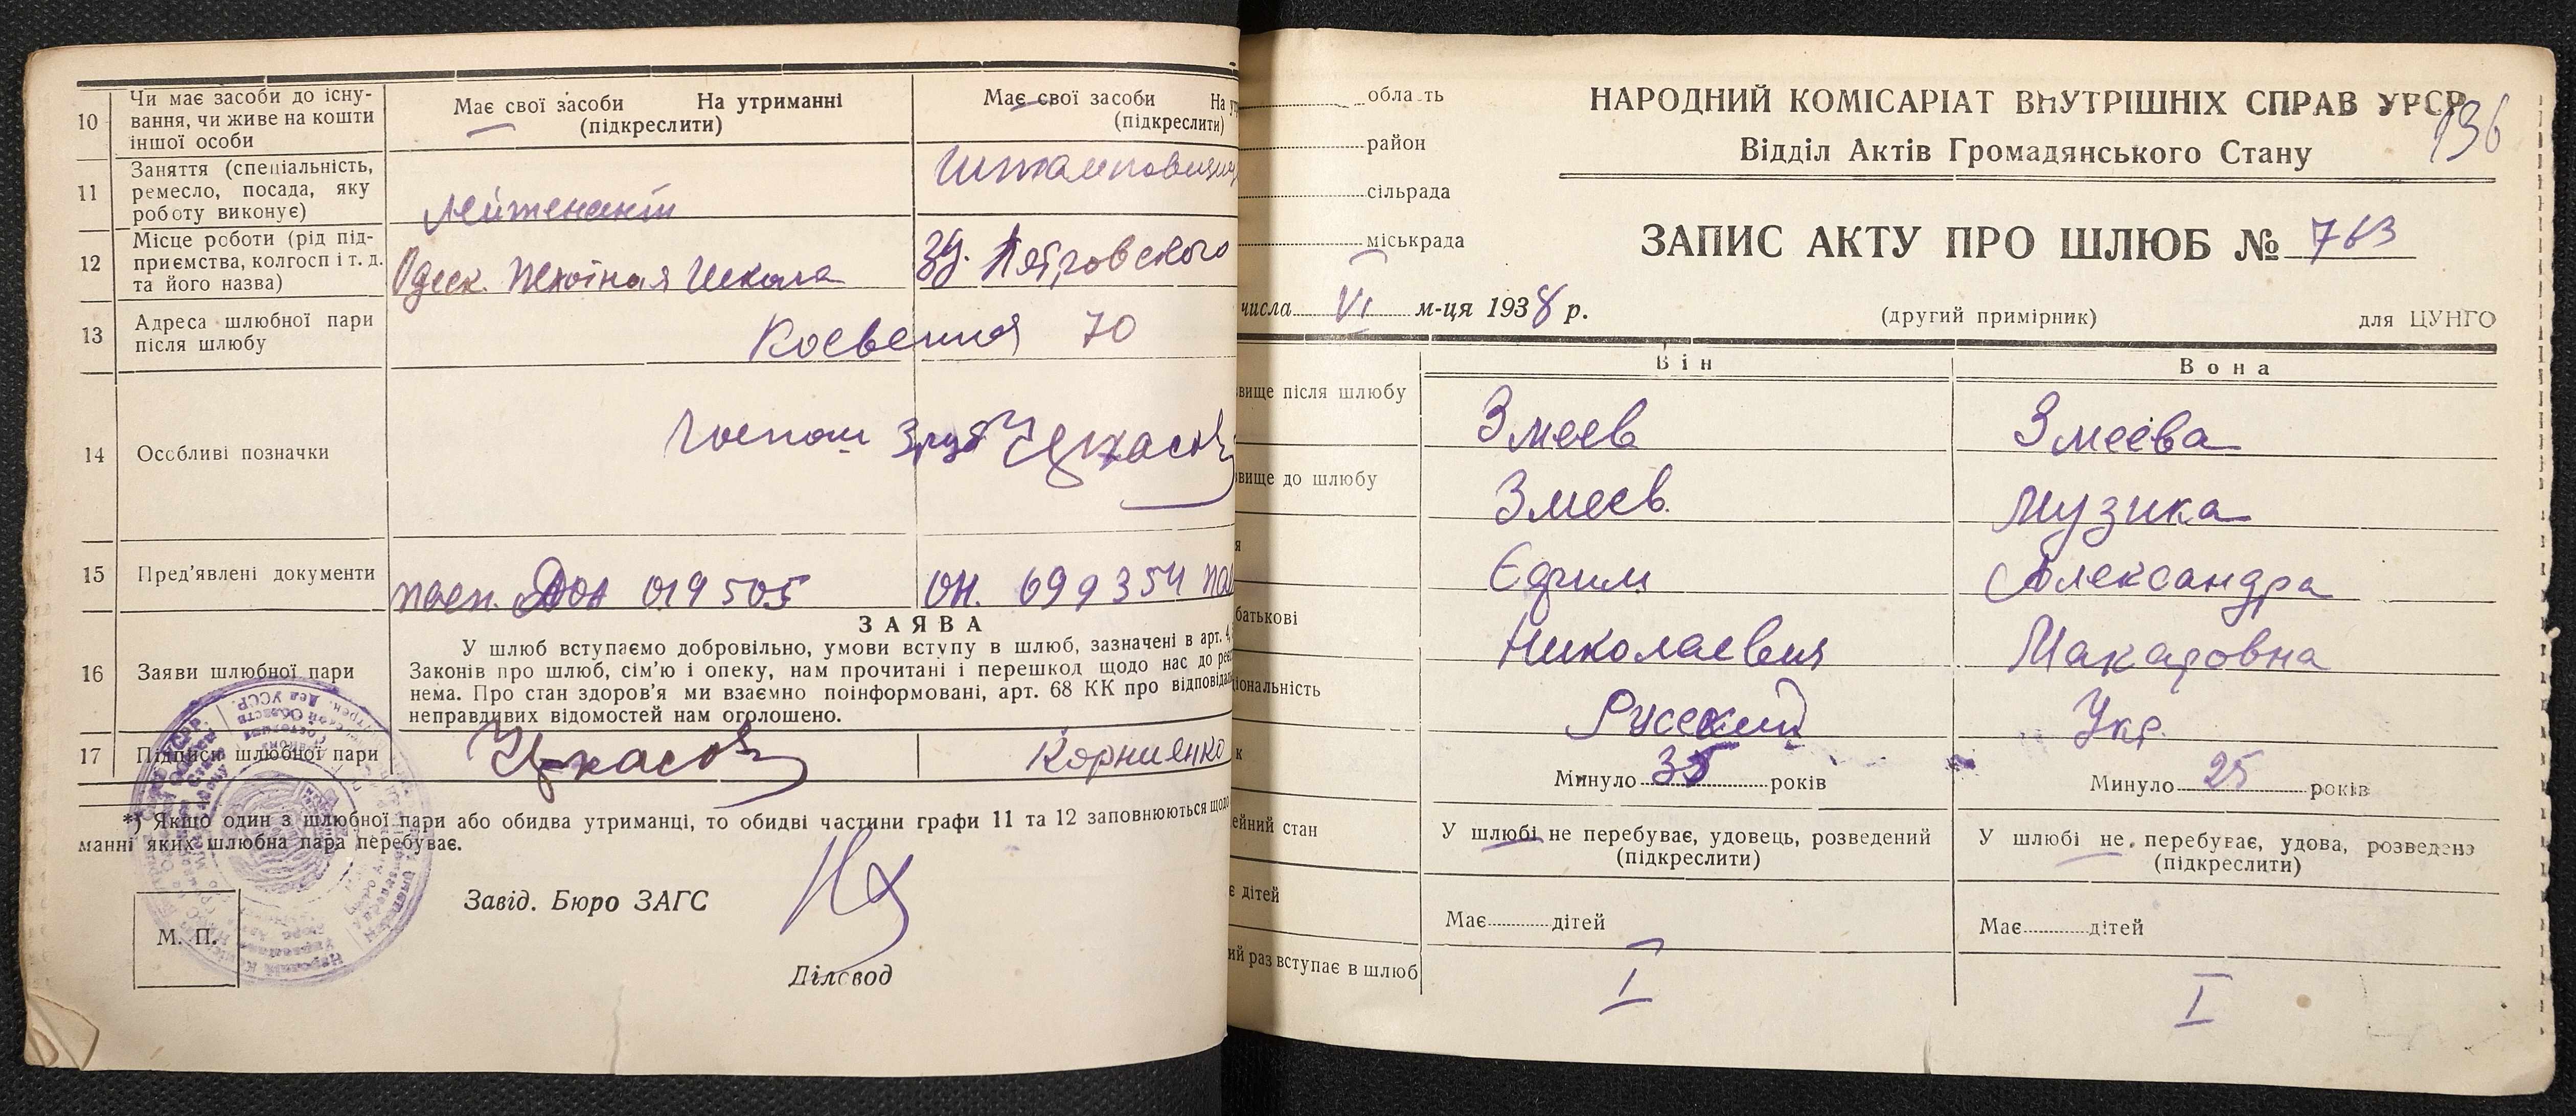 10 Чи має засоби до існу-
вання, чи живе на кошти
іншої особи
Має свої засоби На утриманні
(підкреслити)
Має свої засоби На у
(підкреслити)
11 Заняття (спеціальність,
ремесло, посада, яку
роботу виконує)
Лейтенант
12 Місце роботи (рід під-
приємства, колгосп і т. д.
та його назва)
Одеск. Школа
Зд. Петровского
13 Адреса шлюбної пари
після шлюбу
70
14 Особливі позначки
15 Пред'явлені документи
019505
ОН. 699354
16 Заяви шлюбної пари
ЗАЯВА
У шлюб вступаємо добровільно, умови вступу в шлюб, зазначені в арт. 4,
Законів про шлюб, сім'ю і опеку, нам прочитані і перешкод щодо нас до реє
нема. Про стан здоров'я ми взаємно поінформовані, арт. 68 КК про відповідал
неправдивих відомостей нам оголошено.
17 Підписи шлюбної пари
Корниенко
*) Якщо один з шлюбної пари або обидва утриманці, то обидві частини графи 11 та 12 заповнюються щодо
манні яких шлюбна пара перебуває.
Завід. Бюро ЗАГС
М. П.
Діловод
область
район
сільрада
міськрада
НАРОДНИЙ КОМІСАРІАТ ВНУТРІШНІХ СПРАВ УРСР
136
Відділ Актів Громадянського Стану
ЗАПИС АКТУ ПРО ШЛЮБ № 763
числа VI м-ця 1938 р.
(другий примірник)
для ЦУНГО
Він
Вона
вище після шлюбу
Змеев
Змеева
вище до шлюбу
Змеев.
Музика
я
Єфим
Александра
батькові
Николаевич
Макаровна
іональність
Русский
Укр.
к
Минуло 35 років
Минуло 25 років
ейний стан
У шлюбі не перебуває, удовець, розведений
(підкреслити)
У шлюбі не перебуває, удова, розведена
(підкреслити)
є дітей
Має дітей
Має дітей
ий раз вступає в шлюб
I
I